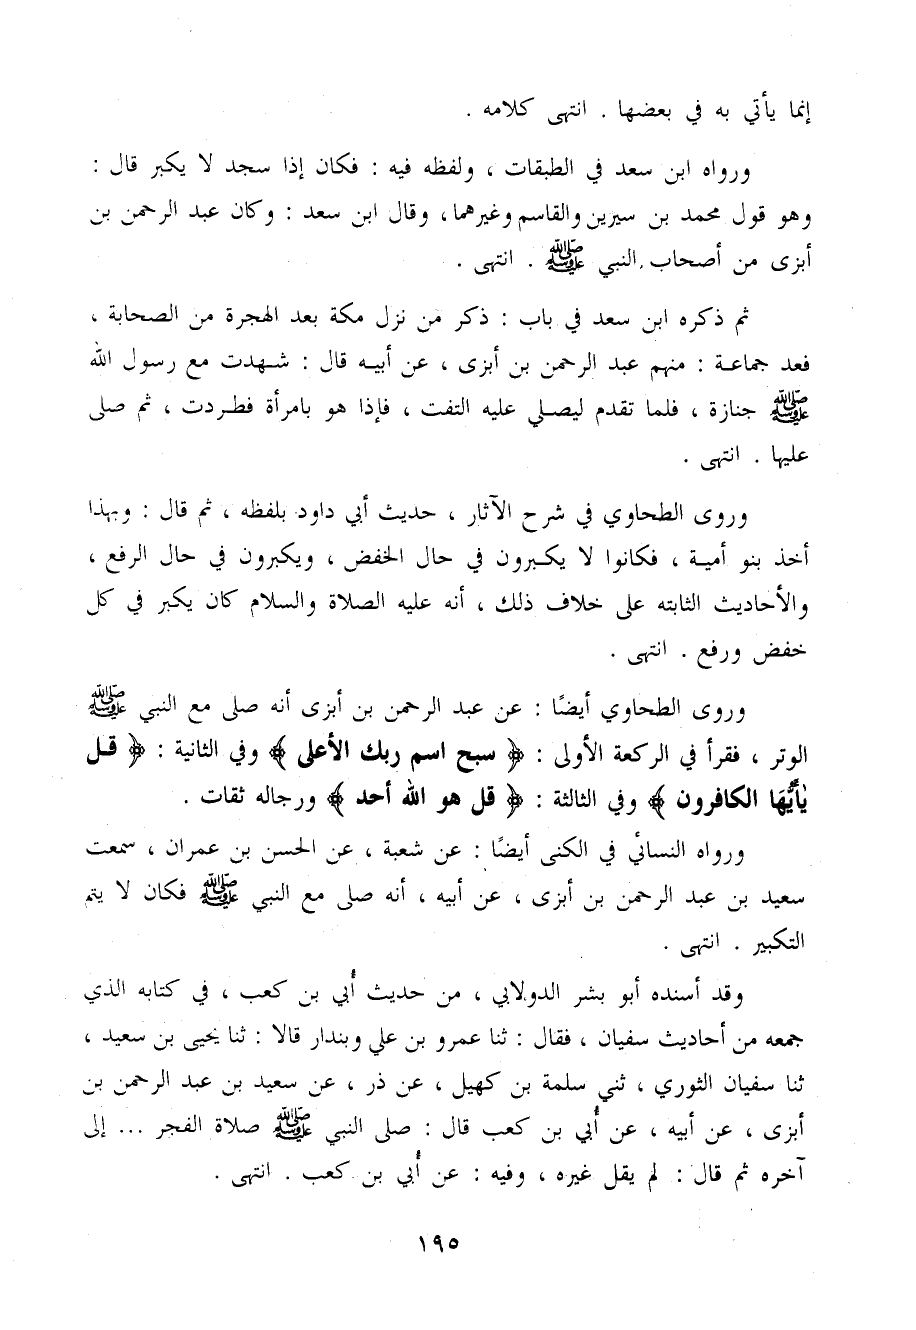 إنما يأتي به في بعضها . انتهى كلامه .
ورواه ابن سعد في الطبقات ، ولفظه فيه : فكان إذا سجد لا يكبر قال :
وهو قول محمد بن سيرين والقاسم وغيرهما، وقال ابن سعد : وكان عبد الرحمن بن
أبزى من أصحاب النبي ﷺ . انتهى .
ثم ذكره ابن سعد في باب : ذكر من نزل مكة بعد الهجرة من الصحابة ،
فعد جماعة : منهم عبد الرحمن بن أبزى ، عن أبيه قال : شهدت مع رسول الله
ﷺ جنازة ، فلما تقدم ليصلي عليه التفت ، فإذا هو بامرأة فطردت ، ثم صلى
عليها . انتهى .
وروى الطحاوي في شرح الآثار ، حديث أبي داود بلفظه ، ثم قال : وبهذا
أخذ بنو أمية ، فكانوا لا يكبرون في حال الخفض ، ويكبرون في حال الرفع ،
والأحاديث الثابته على خلاف ذلك ، أنه عليه الصلاة والسلام كان يكبر في كل
خفض ورفع . انتهى .
وروى الطحاوي أيضًا : عن عبد الرحمن بن أبزى أنه صلى مع النبي ﷺ
الوتر ، فقرأ في الركعة الأولى : ﴿ سبح اسم ربك الأعلى ﴾ وفي الثانية : ﴿ قل
يٰأَيُّهَا الكافرون ﴾ وفي الثالثة : ﴿ قل هو الله أحد ﴾ ورجاله ثقات .
ورواه النسائي في الكنى أيضًا : عن شعبة ، عن الحسن بن عمران ، سمعت
سعيد بن عبد الرحمن بن أبزى ، عن أبيه ، أنه صلى مع النبي ﷺ فكان لا يتم
التكبير . انتهى .
وقد أسنده أبو بشر الدولابي ، من حديث أُبي بن كعب ، في كتابه الذي
جمعه من أحاديث سفيان ، فقال : ثنا عمرو بن علي وبندار قالا : ثنا يحيى بن سعيد ،
ثنا سفيان الثوري ، ثني سلمة بن كهيل ، عن ذر ، عن سعيد بن عبد الرحمن بن
أبزى ، عن أبيه ، عن أُبي بن كعب قال : صلى النبي ﷺ صلاة الفجر ... إلى
آخره ثم قال : لم يقل غيره ، وفيه : عن أُبي بن كعب . انتهى .
١٩٥